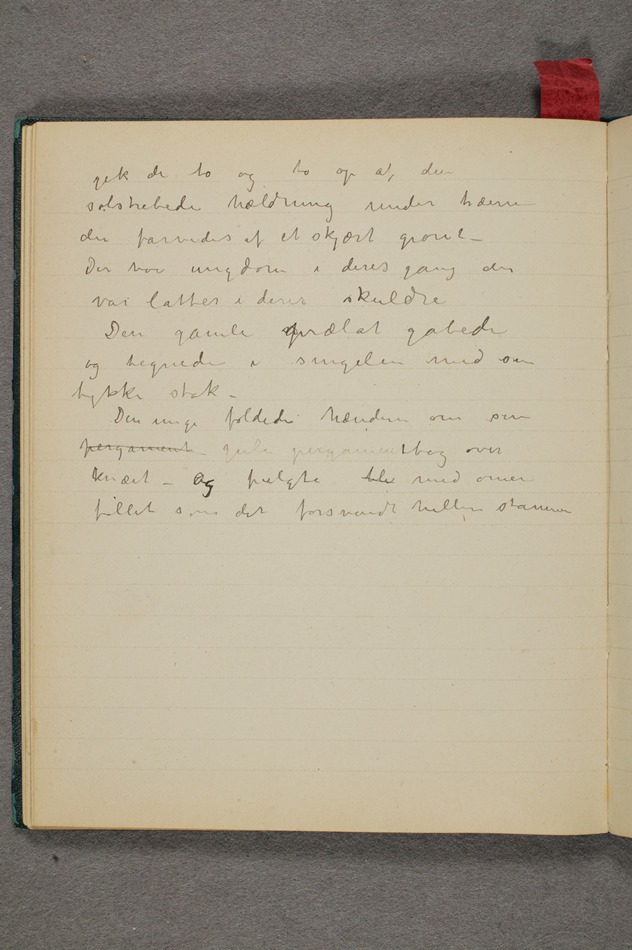 gik de to og to op af den
solstrebede hældning under træerne
der farvedes af et skjært grønt –
Der var ungdom i deres gang der
var latter i deres skuldre
Den gamle prælat gabede
og tegnede i singelen med sin
tykke stok –
Den unge foldede hændern om sin
pergament gule pergamentbog over
knæet – og fulgte med
fillet som det forsvandt mellem stammer